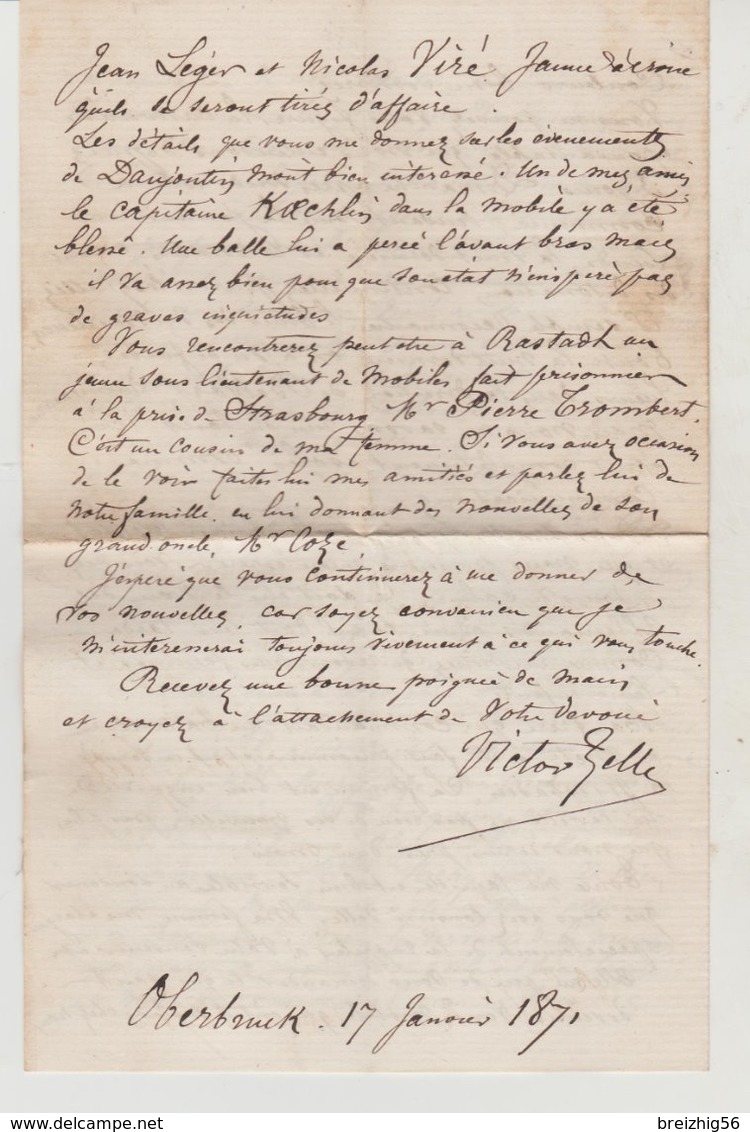 Jean Léger et Nicolas Viré. J'aime à croire
qu'ils se seront tirés d'affaire.
Les détails que vous me donnez sur les évènements
de Danjoutin m'ont bien intéressé. Un de mes amis
le capitaine Kœchlin dans la mobile y a été
blessé. Une balle lui a percé l'avant bras mais
il va assez bien pour que son état n'inspire pas
de graves inquiétudes
Vous rencontrerez peut etre à Rastadt un
jeune sous lieutenant de Mobiles fait prisonnier
à la prise de Strasbourg Mr Pierre Trombert.
C'est un cousin de ma femme. Si vous avez occasion
de le voir faites lui mes amitiés et parlez lui de
notre famille en lui donnant des nouvelles de son
grand oncle, Mr Coze.
J'espère que vous continuerez à me donner de
vos nouvelles, car soyez convaincu que je
m'intéresserai toujours vivement à ce qui vous touche.
Recevez une bonne poignée de main
et croyez à l'attachement de votre dévoué
Victor Zeller
Oberbruck. 17 Janvier 1871
delcampe.net
breizhig56